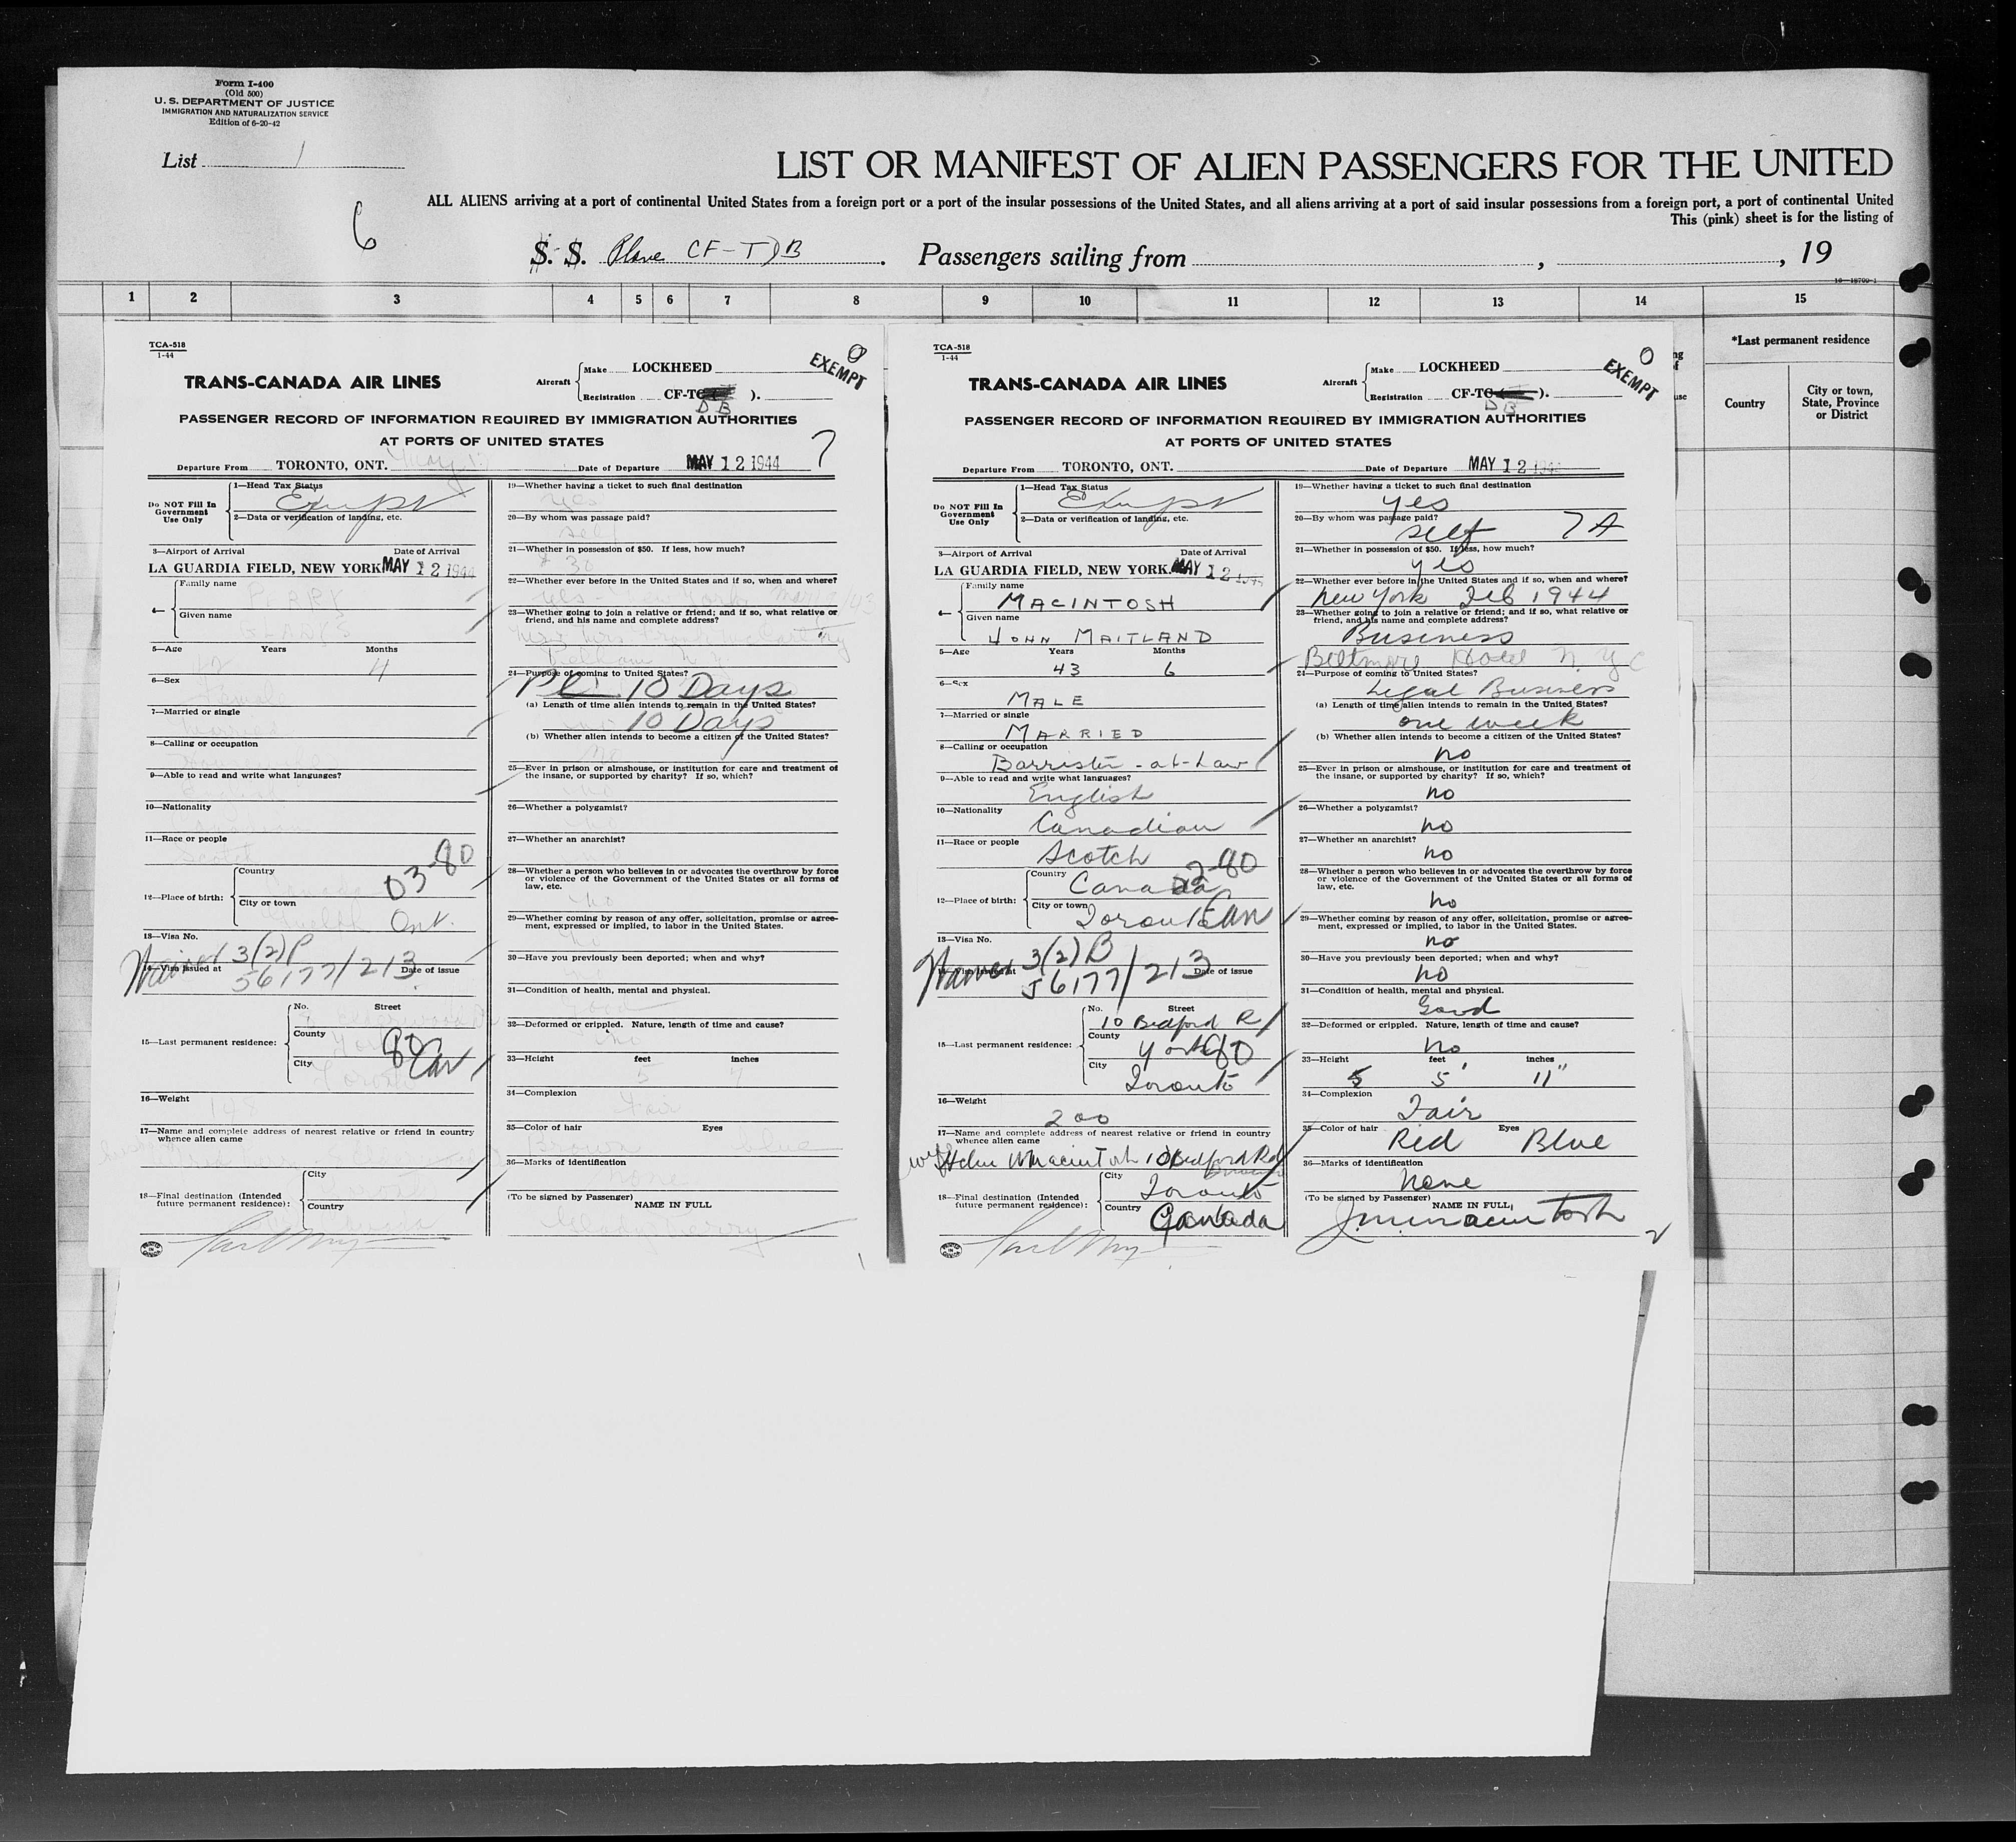 Form I-400
(Old 500)
U. S. DEPARTMENT OF JUSTICE
IMMIGRATION AND NATURALIZATION SERVICE
Edition of 6-20-42
List 1
LIST OR MANIFEST OF ALIEN PASSENGERS FOR THE UNITED
ALL ALIENS arriving at a port of continental United States from a foreign port or a port of the insular possessions of the United States, and all aliens arriving at a port of said insular possessions from a foreign port, a port of continental United
This (pink) sheet is for the listing of
6
S. S. Plane CF-TDB. Passengers sailing from , , 19
1 2 3 4 5 6 7 8 9 10 11 12 13 14 15
*Last permanent residence
Country
City or town,
State, Province
or District
TCA-518
1-44
TRANS-CANADA AIR LINES
Aircraft
Make LOCKHEED
Registration CF-TC ( ).
DB
0
EXEMPT
PASSENGER RECORD OF INFORMATION REQUIRED BY IMMIGRATION AUTHORITIES
AT PORTS OF UNITED STATES
7
Departure From TORONTO, ONT. Date of Departure MAY 12 1944
Do NOT Fill In
Government
Use Only
1—Head Tax Status
Exempt
2—Data or verification of landing, etc.
3—Airport of Arrival Date of Arrival
LA GUARDIA FIELD, NEW YORK. MAY 12 1944
4—
Family name
Given name
GLADYS
5—Age Years Months
42 4
6—Sex
7—Married or single
8—Calling or occupation
9—Able to read and write what languages?
10—Nationality
11—Race or people
Scotch
03-80
12—Place of birth:
Country
Canada
City or town
Guelph Ont.
13—Visa No.
Waiver 3(2)P
14—Visa issued at Date of issue
56177/213
15—Last permanent residence:
No. Street
County
York 80
City
Toronto Can
16—Weight
17—Name and complete address of nearest relative or friend in country
whence alien came
18—Final destination (Intended
future permanent residence):
City
Country
19—Whether having a ticket to such final destination
yes
20—By whom was passage paid?
self
21—Whether in possession of $50. If less, how much?
$ 30
22—Whether ever before in the United States and if so, when and where?
yes - New York
23—Whether going to join a relative or friend; and if so, what relative or
friend, and his name and complete address?
Pelham N.Y.
24—Purpose of coming to United States?
10 Days
(a) Length of time alien intends to remain in the United States?
10 Days
(b) Whether alien intends to become a citizen of the United States?
no
25—Ever in prison or almshouse, or institution for care and treatment of
the insane, or supported by charity? If so, which?
no
26—Whether a polygamist?
27—Whether an anarchist?
no
28—Whether a person who believes in or advocates the overthrow by force
or violence of the Government of the United States or all forms of
law, etc.
no
29—Whether coming by reason of any offer, solicitation, promise or agree-
ment, expressed or implied, to labor in the United States.
no
30—Have you previously been deported; when and why?
31—Condition of health, mental and physical.
good
32—Deformed or crippled. Nature, length of time and cause?
no
33—Height feet inches
5
34—Complexion
Fair
35—Color of hair Eyes
Brown blue
36—Marks of identification
none
(To be signed by Passenger) NAME IN FULL
TCA-518
1-44
TRANS-CANADA AIR LINES
Aircraft
Make LOCKHEED
Registration CF-TC ( ).
DB
0
EXEMPT
PASSENGER RECORD OF INFORMATION REQUIRED BY IMMIGRATION AUTHORITIES
AT PORTS OF UNITED STATES
Departure From TORONTO, ONT. Date of Departure MAY 12 1944
Do NOT Fill In
Government
Use Only
1—Head Tax Status
Exempt
2—Data or verification of landing, etc.
3—Airport of Arrival Date of Arrival
LA GUARDIA FIELD, NEW YORK. MAY 12 1944
4—
Family name
MACINTOSH
Given name
JOHN MAITLAND
5—Age Years Months
43 6
6—Sex
MALE
7—Married or single
MARRIED
8—Calling or occupation
Barrister-at-Law
9—Able to read and write what languages?
English
10—Nationality
Canadian
11—Race or people
Scotch
12—Place of birth:
Country
Canada
City or town
Toronto Can
13—Visa No.
Waiver 3(2)B
14—Visa issued at Date of issue
56177/213
15—Last permanent residence:
No. Street
10 Bedford R
County
York 80
City
Toronto
16—Weight
200
17—Name and complete address of nearest relative or friend in country
whence alien came
wife Helen Macintosh 10 Bedford Rd
18—Final destination (Intended
future permanent residence):
City
Toronto
Country
Canada
19—Whether having a ticket to such final destination
yes
20—By whom was passage paid?
self 7A
21—Whether in possession of $50. If less, how much?
yes
22—Whether ever before in the United States and if so, when and where?
New York Feb 1944
23—Whether going to join a relative or friend; and if so, what relative or
friend, and his name and complete address?
Business
Biltmore Hotel N.Y.C
24—Purpose of coming to United States?
Legal Business
(a) Length of time alien intends to remain in the United States?
one week
(b) Whether alien intends to become a citizen of the United States?
no
25—Ever in prison or almshouse, or institution for care and treatment of
the insane, or supported by charity? If so, which?
no
26—Whether a polygamist?
no
27—Whether an anarchist?
no
28—Whether a person who believes in or advocates the overthrow by force
or violence of the Government of the United States or all forms of
law, etc.
no
29—Whether coming by reason of any offer, solicitation, promise or agree-
ment, expressed or implied, to labor in the United States.
no
30—Have you previously been deported; when and why?
no
31—Condition of health, mental and physical.
Good
32—Deformed or crippled. Nature, length of time and cause?
no
33—Height feet inches
5' 11"
34—Complexion
Fair
35—Color of hair Eyes
Red Blue
36—Marks of identification
None
(To be signed by Passenger) NAME IN FULL
J. M. Macintosh